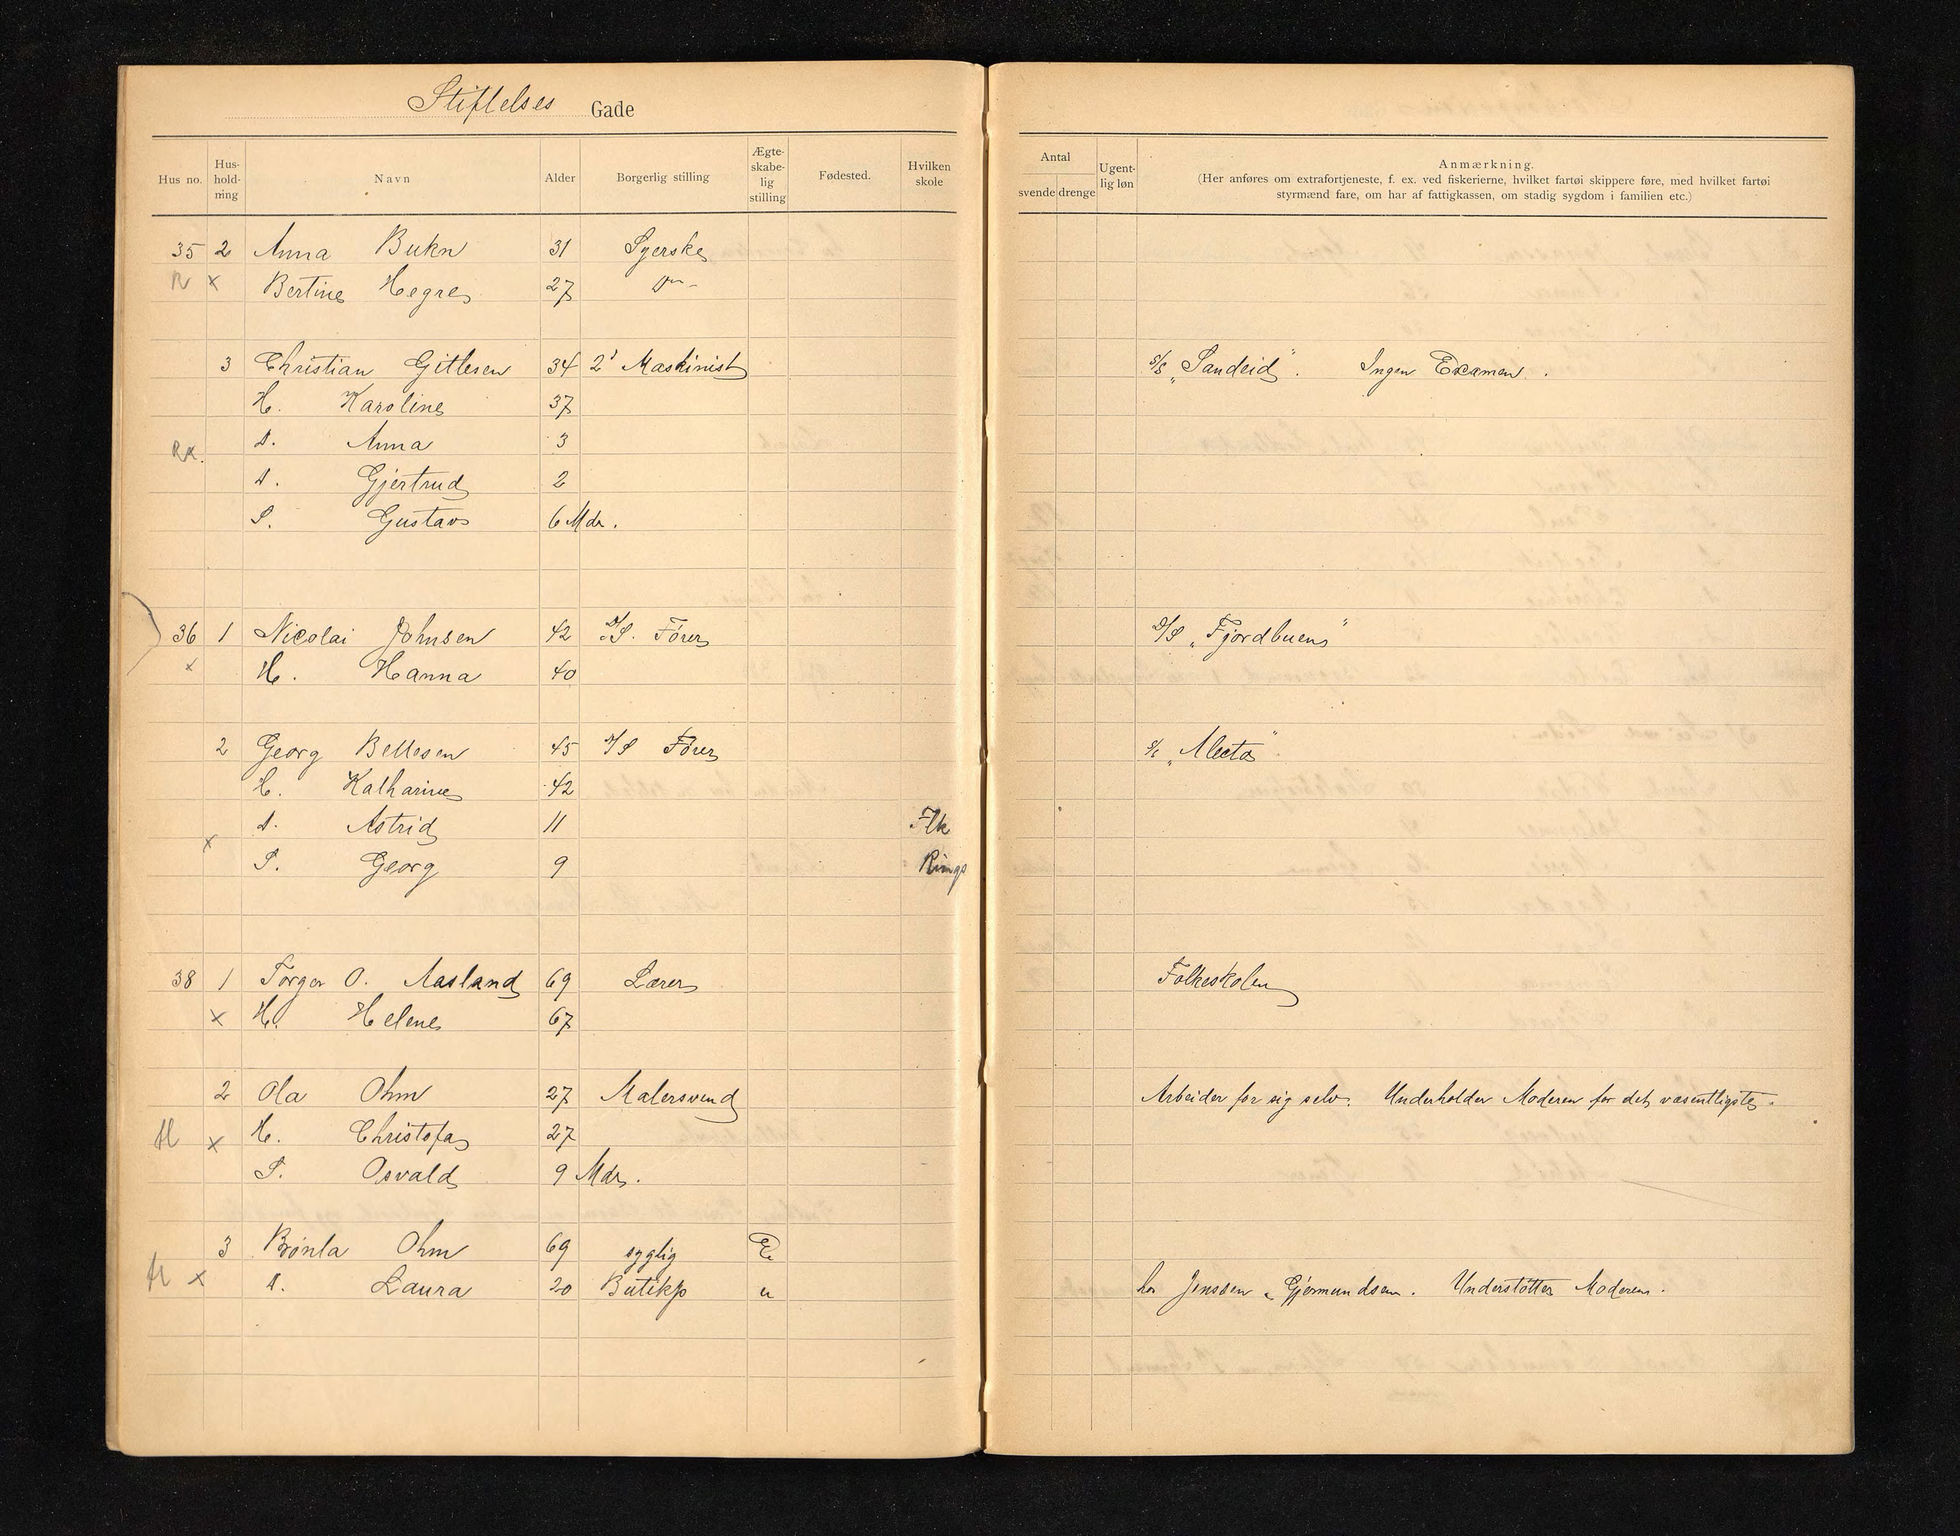 Stiftelses Gade
Hus no. Hus-hold-ning Navn Alder Borgerlig stilling Ægte-skabe-lig stilling Fødested. Hvilken skole
Antal svende drenge Ugent-lig løn Anmærkning.
(Her anføres om extrafortjeneste, f. ex. ved fiskerierne, hvilket fartøi skippere føre, med hvilket fartøi
styrmænd fare, om har af fattigkassen, om stadig sygdom i familien etc.)
35 2 Anna Bukn 31 Syerske
R x Bertine Hegre 27 Do
3 Christian Gitlesen 34 2' Maskinist S/S "Sandeid". Ingen Examen.
H. Karoline 37
Rx. D. Anna 3
D. Gjertrud 2
S. Gustav 6 Mdr.
36 1 Nicolai Johnsen 42 D/S. Fører D/S "Fjordbuen"
x H. Hanna 40
2 Georg Bellesen 45 D/S Fører S/S "Alecto".
H. Katharine 42
D. Astrid 11 Flk
x S. Georg 9 Kings
38 1 Torger O. Aasland 69 Lærer Folkeskolen
x H. Helene 67
2 Ola Ohm 27 Malersvend Arbeider for sig selv. Underholder Moderen for det væsentligste.
H x H. Christofa 27
S. Osvald 9 Mdr.
3 Brønla Ohm 69 syglig E
H x D. Laura 20 Butikp u hos Jenssen & Gjermundsen. Understøtter Moderen.